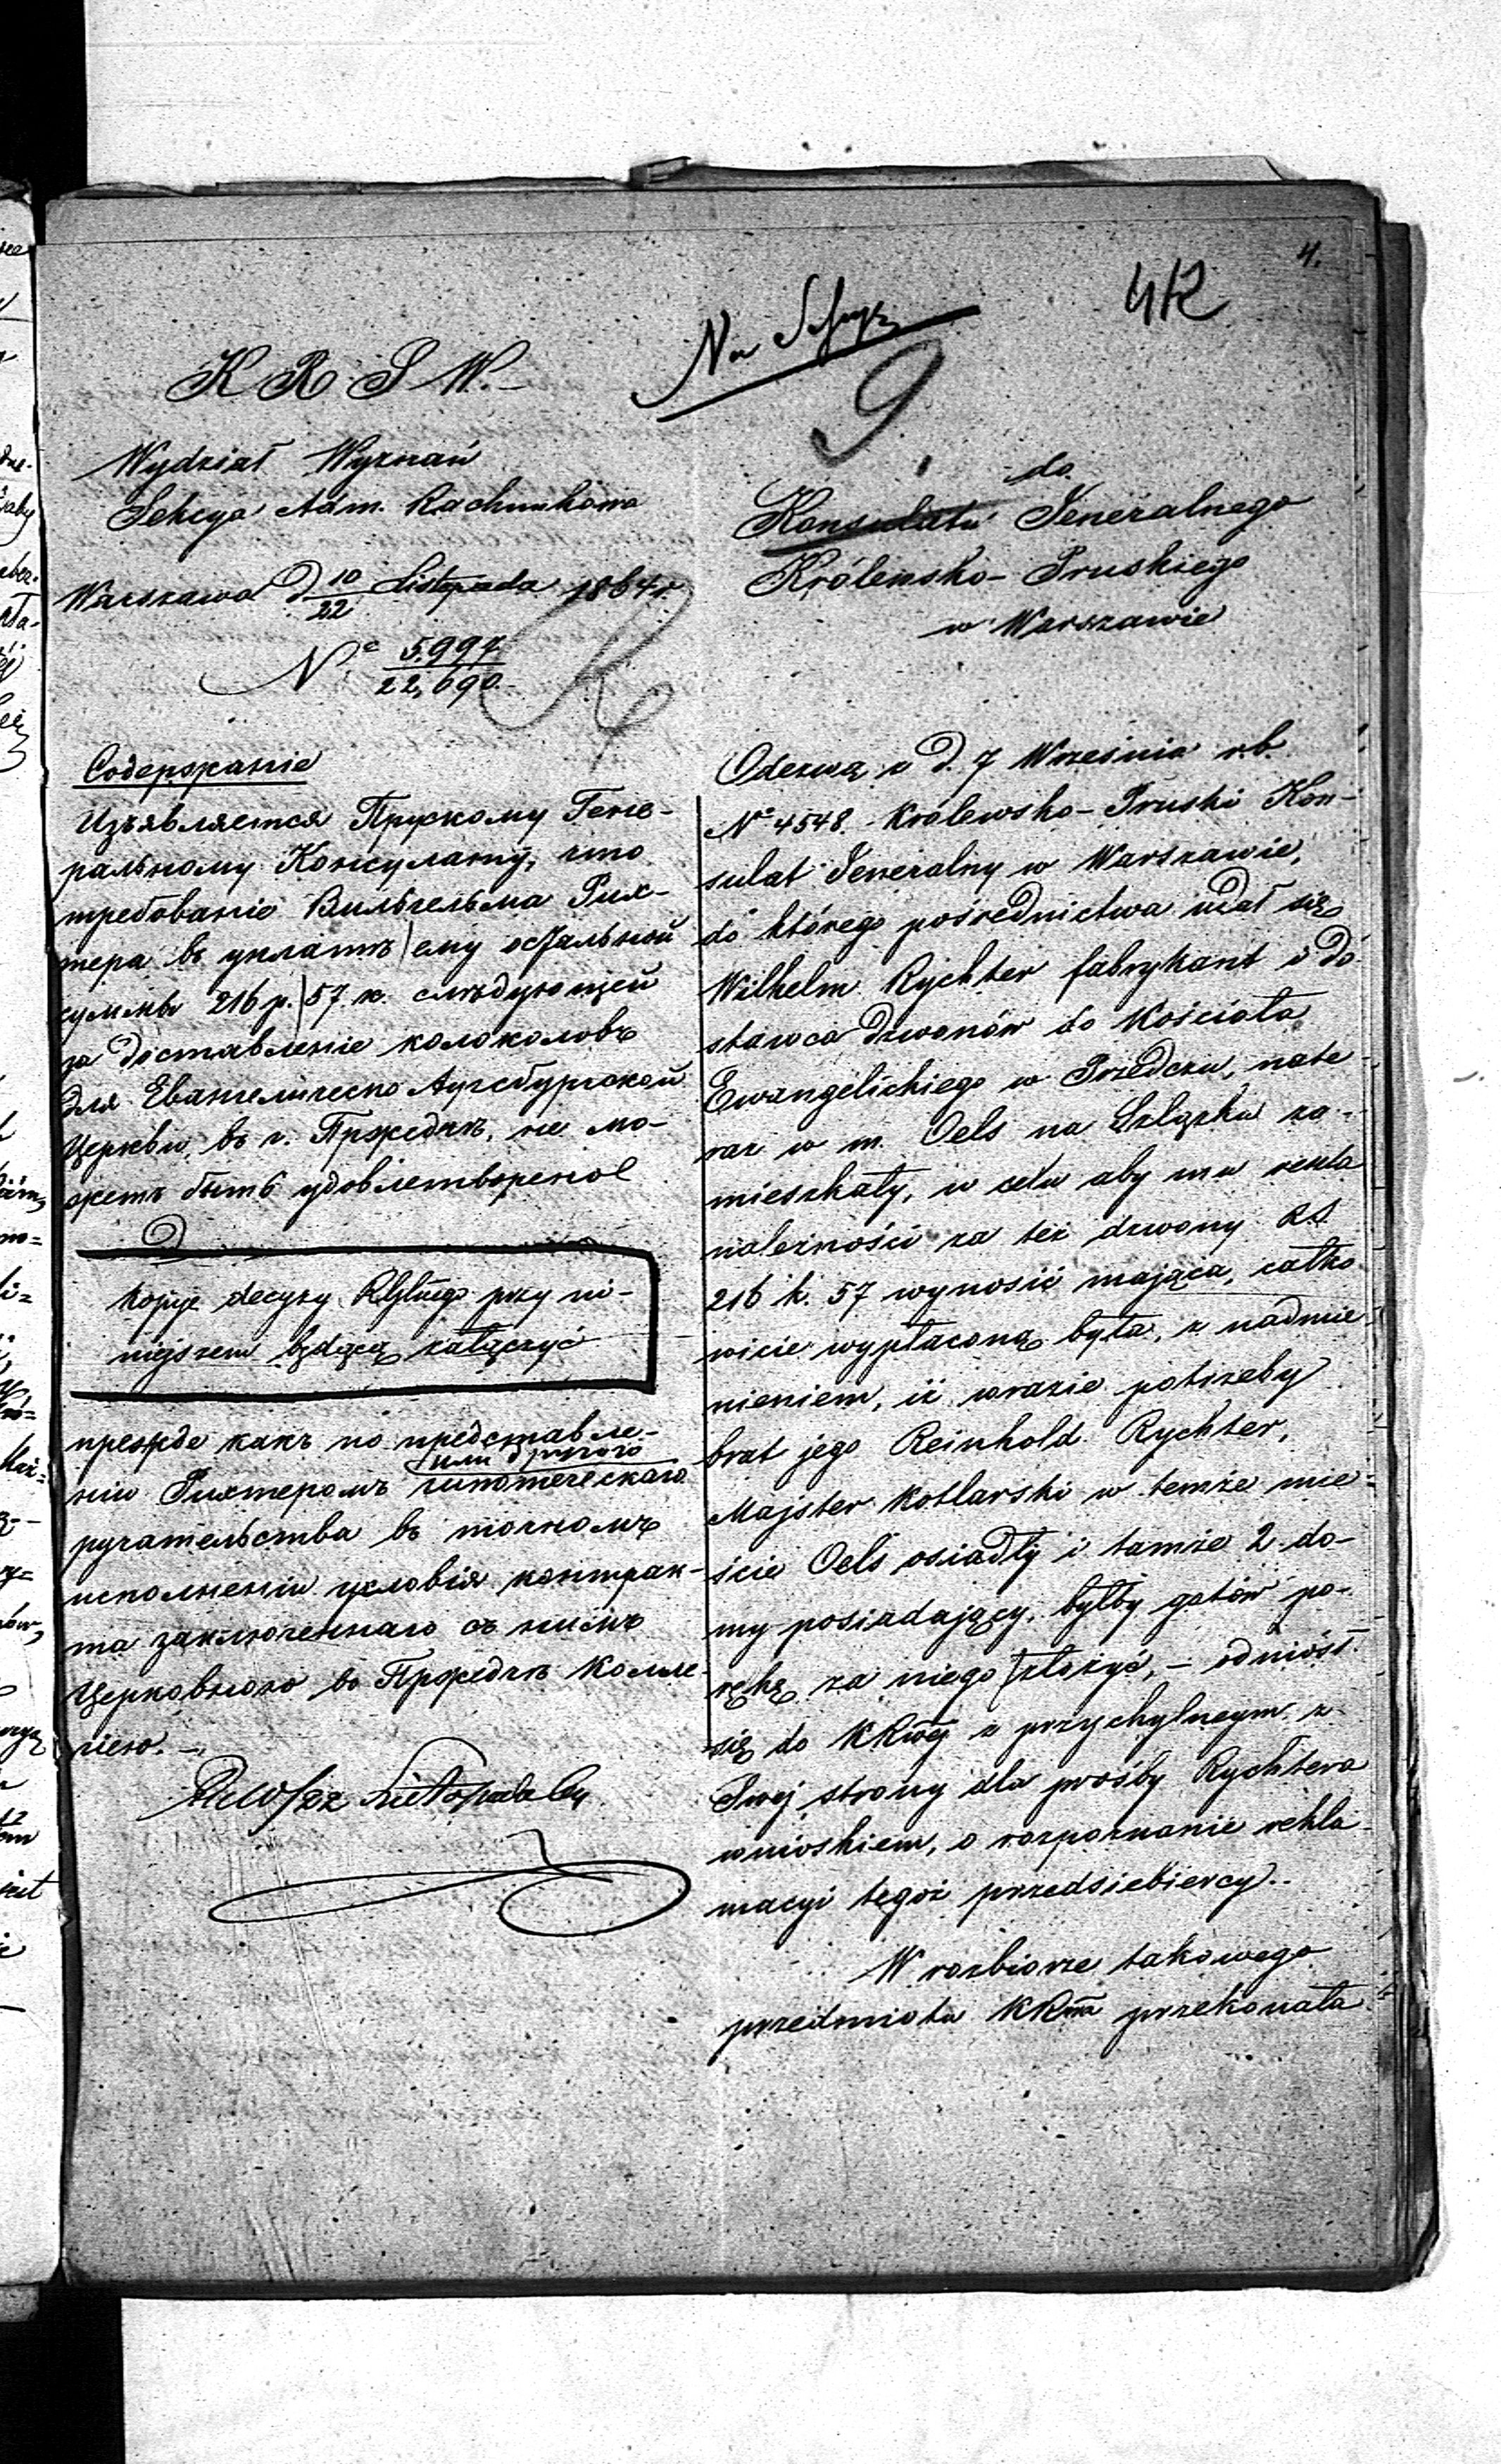 4.
412
Na
9
K R S W.
Wydział Wyznań
Sekcya Adm. Rachunkowa
Warszawa d 10/22 Listopada 1864 r.
N° 5997/22,690.
R
do
Konsulatu Jeneralnego
Królewsko-Pruskiego
w Warszawie
Содержаніе
Изъявляется Прускому Гене-
ральному Консулату, что
требованіе Вильгельма Рих-
тера въ уплатѣ ему остальной
суммы 216 р. 57 к. слѣдующей
за доставленіе колоколовъ
для Евангелическо Аугсбургской
Церкви, въ г. Пржедчѣ, не мо-
жетъ быть удовлетворено
kopję decyzy przy ni-
niejszem będącą załączyć
прежде какъ по представле-
или другого
ніи Рихтеромъ гипотеческаго
ручательства въ точномъ
исполненіи условія контрак-
та заключеннаго съ нимъ
Церковною во Пржедчѣ Колле-
гіею.
Odezwą z d. 7 Września r.b.
N° 4548. Królewsko-Pruski Kon-
sulat Jeneralny w Warszawie,
do którego pośrednictwa udał się
Wilhelm Rychter fabrykant i do-
stawca dzwonów do Kościoła
Ewangelickiego w Przedczu, nate-
raz w m. Oels na Szląsku za-
mieszkały, w celu aby mu reszta
należności za też dzwony RS.
216 k. 57 wynosić mająca, całko
wicie wypłaconą była, z nadmie
nieniem, iż wrazie potrzeby
brat jego Reinhold Rychter,
Majster kotlarski w temże mie-
ście Oels osiadły i tamże 2 do-
my posiadający, byłby gotów po-
rękę za niego złożyć, – odniósł
się do KRwej z przychylnym z
Swej strony dla prośby Rychtera
wnioskiem, o rozpoznanie rekla-
macyi tegoż przedsiebiercy.
W rozbiorze takowego
przedmiotu KRwa przekonała